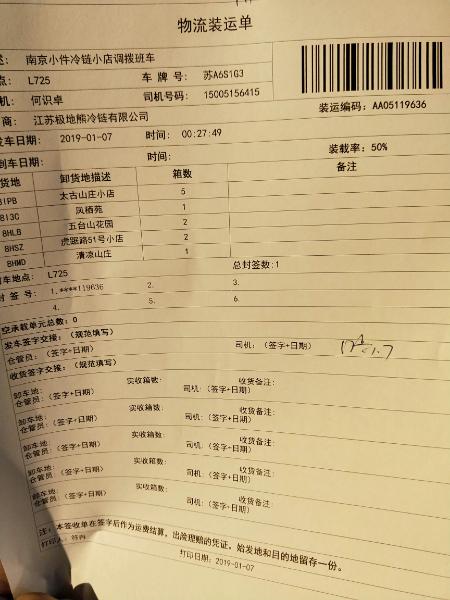 物流装运单
南京小件冷链小店调拨班车
点: L725 车牌号: 苏A6S1G3
机: 何识卓 司机号码: 15005156415
商: 江苏极地熊冷链有限公司 装运编码: AA05119636
发车日期: 2019-01-07 时间: 00:27:49
到车日期: 时间: 装载率: 50%
货地 卸货地描述 箱数 备注
8IPB 太古山庄小店 5
8I3C 凤栖苑 1
8HLB 五台山花园 2
8HSZ 虎踞路51号小店 2
8HMD 清凉山庄 1
车地点: L725 总封签数:1
封签号: 1.****119636 2. 3.
4. 5. 6.
空承载单元总数: 0
发车签字交接: (规范填写)
仓管员: (签字+日期) 司机: (签字+日期)
收货签字交接: (规范填写)
卸车地: 实收箱数: 收货备注:
仓管员: (签字+日期) 司机: (签字+日期)
卸车地: 实收箱数: 收货备注:
仓管员: (签字+日期) 司机: (签字+日期)
卸车地: 实收箱数: 收货备注:
仓管员: (签字+日期) 司机: (签字+日期)
卸车地: 实收箱数: 收货备注:
仓管员: (签字+日期) 司机: (签字+日期)
卸车地: 实收箱数: 收货备注:
仓管员: (签字+日期) 司机: (签字+日期)
注: 本签收单在签字后作为运费结算, 出险理赔的凭证, 始发地和目的地留存一份。
打印人: 打印日期: 2019-01-07